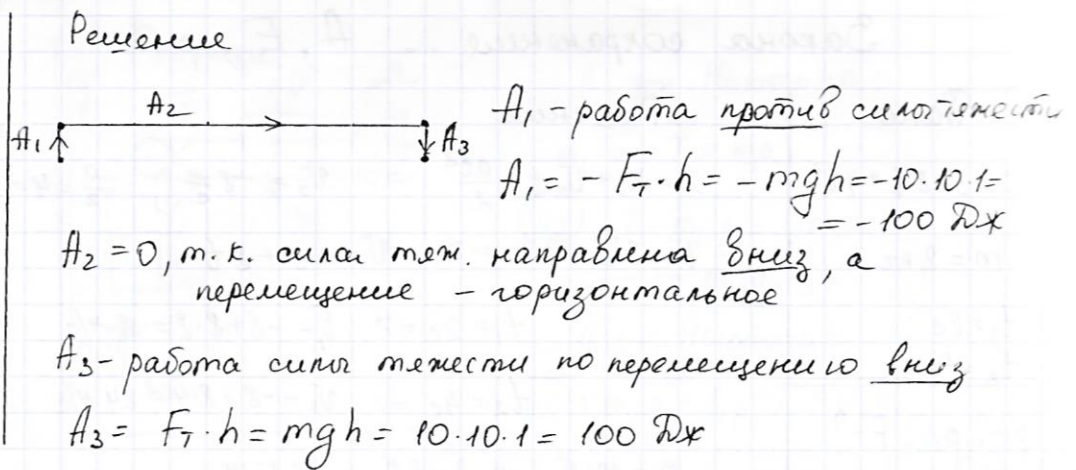 Решение
A₂
A₁
A₃
A₁ - работа против силы тяжести
A₁ = - Fт · h = - mgh = -10·10·1=
= - 100 Дж
A₂ = 0, т.к. сила тяж. направлена вниз, а
перемещение - горизонтальное
A₃ - работа силы тяжести по перемещению вниз
A₃ = Fт · h = mgh = 10·10·1 = 100 Дж